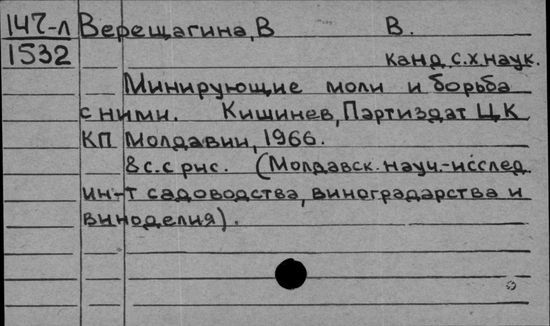 147-л Верещагина, В В.
1532 канд. с.х. наук.
Минирующие моли и борьба
с ними. Кишинев, Партиздат ЦК
КП Молдавии, 1966.
8 с. с рис. (Молдавск. науч.-исслед.
ин-т садоводства, виноградарства и
виноделия).